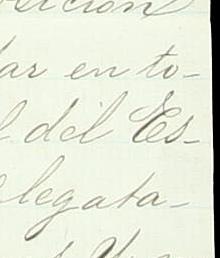 sición
dar en to-
l del Es-
legata-